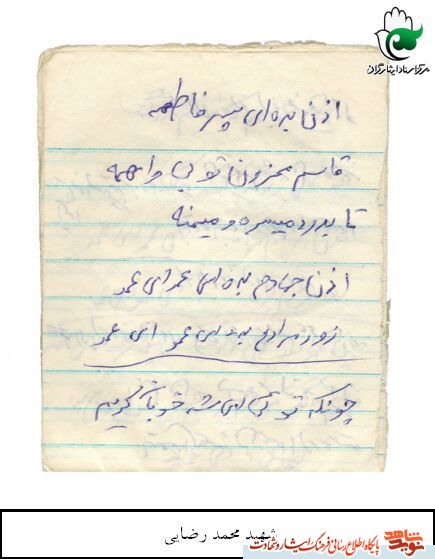 مرکز اسناد ایثارگران
اذن بده ای پسر فاطمه
قاسم محزون تو بی واهمه
تا بدرد میسره و میمنه
اذن جهادم بده ای عمو ای عمو
زود مرادم بده ای عمو ای عمو
چونکه تو ای شه
شهید محمد رضایی
نوید شاهد
پایگاه اطلاع رسانی فرهنگ ایثار و شهادت